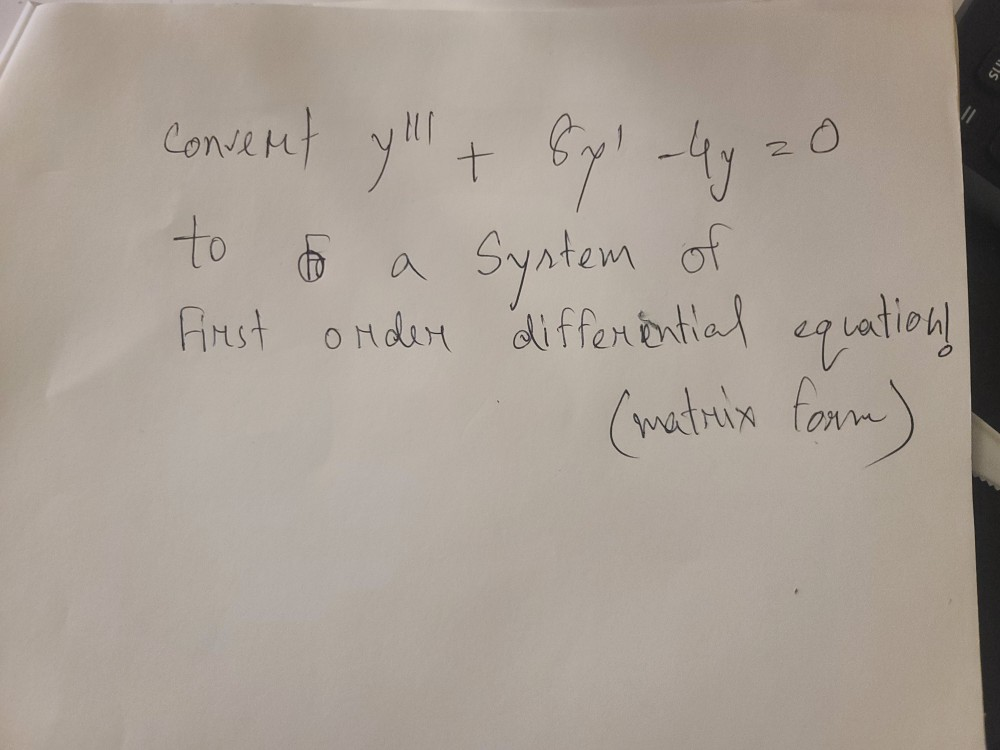 Convert y''' + 8y' - 4y = 0
to a System of
First order differential equation!
(matrix form)